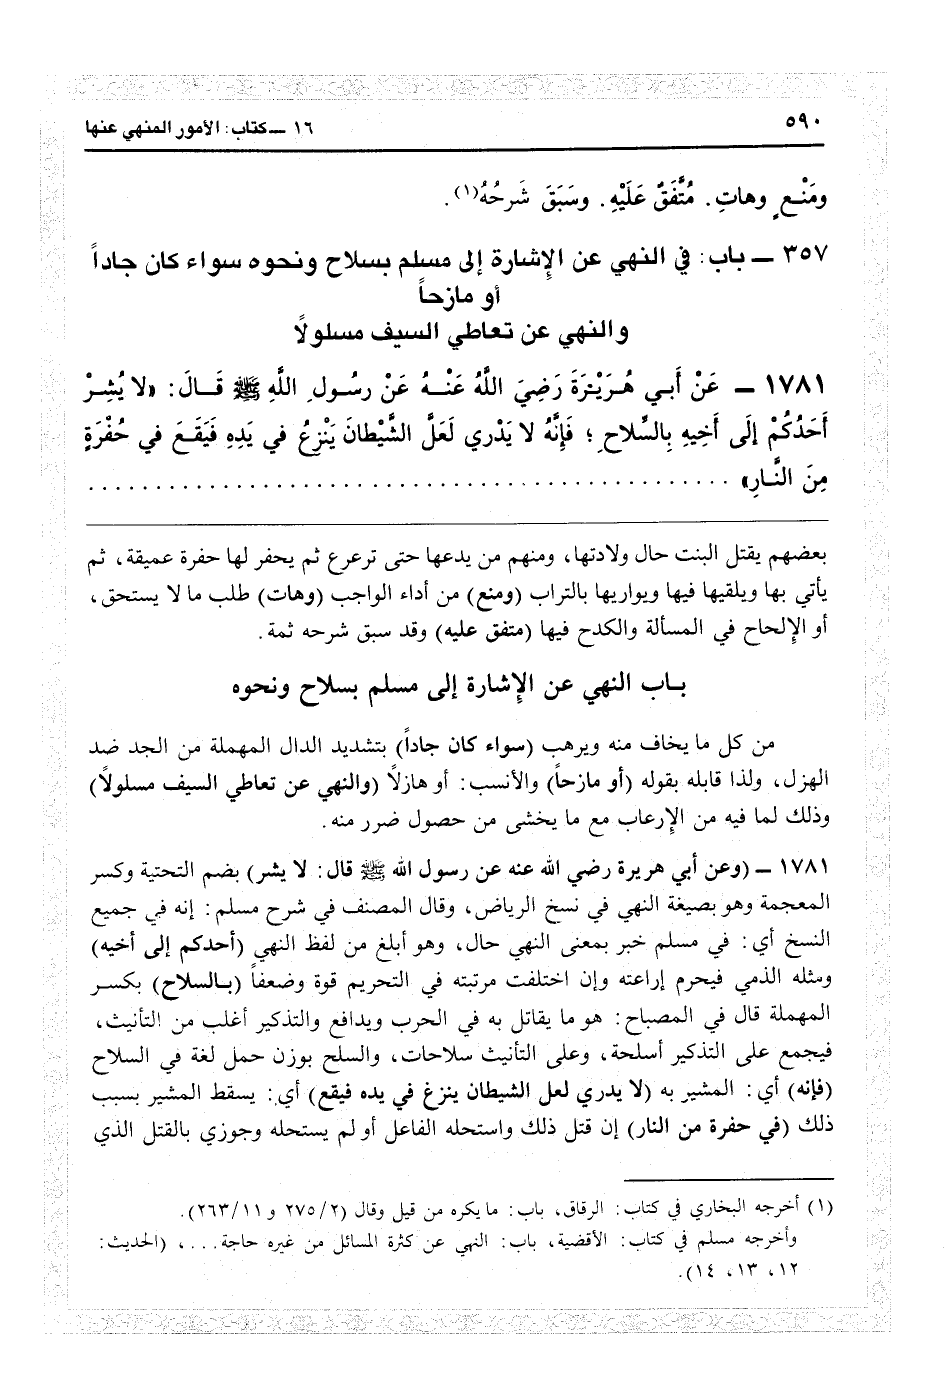 ٥٩٠
١٦ ــ كتاب: الأمور المنهي عنها
ومَنْـعٍ وهاتِ. مُتَّفَقٌ عَلَيْهِ. وسَبَقَ شَرحُهُ(١).
٣٥٧ ــ باب: في النهي عن الإشارة إلى مسلم بسلاح ونحوه سواء كان جاداً
أو مازحاً
والنهي عن تعاطي السيف مسلولاً
١٧٨١ ــ عَنْ أَبـي هُـرَيْـرَةَ رَضِيَ اللَّهُ عَنْـهُ عَنْ رسُـولِ اللَّهِ ﷺ قَـالَ: «لا يُشِـرْ
أَحَدُكُمْ إلَى أَخِيهِ بِالسِّلاحِ ؛ فَإِنَّهُ لا يَدْري لَعَلَّ الشَّيْطانَ يَنْزِغُ في يَدِهِ فَيَقَعَ في حُفْرَةٍ
مِنَ النَّـارِ» . . . . . . . . . . . . . . . . . . . . . . . . . . . . . . . . . . . . . . . . . . . . . . . .
بعضهم يقتل البنت حال ولادتها، ومنهم من يدعها حتى ترعرع ثم يحفر لها حفرة عميقة، ثم
يأتي بها ويلقيها فيها ويواريها بالتراب (ومنع) من أداء الواجب (وهات) طلب ما لا يستحق،
أو الإلحاح في المسألة والكدح فيها (متفق عليه) وقد سبق شرحه ثمة.
بـاب النهي عن الإشارة إلى مسلم بسلاح ونحوه
من كل ما يخاف منه ويرهب (سواء كان جاداً) بتشديد الدال المهملة من الجد ضد
الهزل، ولذا قابله بقوله (أو مازحاً) والأنسب: أو هازلاً (والنهي عن تعاطي السيف مسلولاً)
وذلك لما فيه من الإرعاب مع ما يخشى من حصول ضرر منه.
١٧٨١ ــ (وعن أبي هريرة رضي الله عنه عن رسول الله ﷺ قال: لا يشر) بضم التحتية وكسر
المعجمة وهو بصيغة النهي في نسخ الرياض، وقال المصنف في شرح مسلم: إنه في جميع
النسخ أي: في مسلم خبر بمعنى النهي حال، وهو أبلغ من لفظ النهي (أحدكم إلى أخيه)
ومثله الذمي فيحرم إراعته وإن اختلفت مرتبته في التحريم قوة وضعفاً (بـالسلاح) بكسر
المهملة قال في المصباح: هو ما يقاتل به في الحرب ويدافع والتذكير أغلب من التأنيث،
فيجمع على التذكير أسلحة، وعلى التأنيث سلاحات، والسلح بوزن حمل لغة في السلاح
(فإنه) أي: المشير به (لا يدري لعل الشيطان ينزغ في يده فيقع) أي: يسقط المشير بسبب
ذلك (في حفرة من النار) إن قتل ذلك واستحله الفاعل أو لم يستحله وجوزي بالقتل الذي
(١) أخرجه البخاري في كتاب: الرقاق، باب: ما يكره من قيل وقال (٢٧٥/٢ و ٢٦٣/١١).
وأخرجه مسلم في كتاب: الأقضية، باب: النهي عن كثرة المسائل من غيره حاجة...، (الحديث:
١٢، ١٣، ١٤).